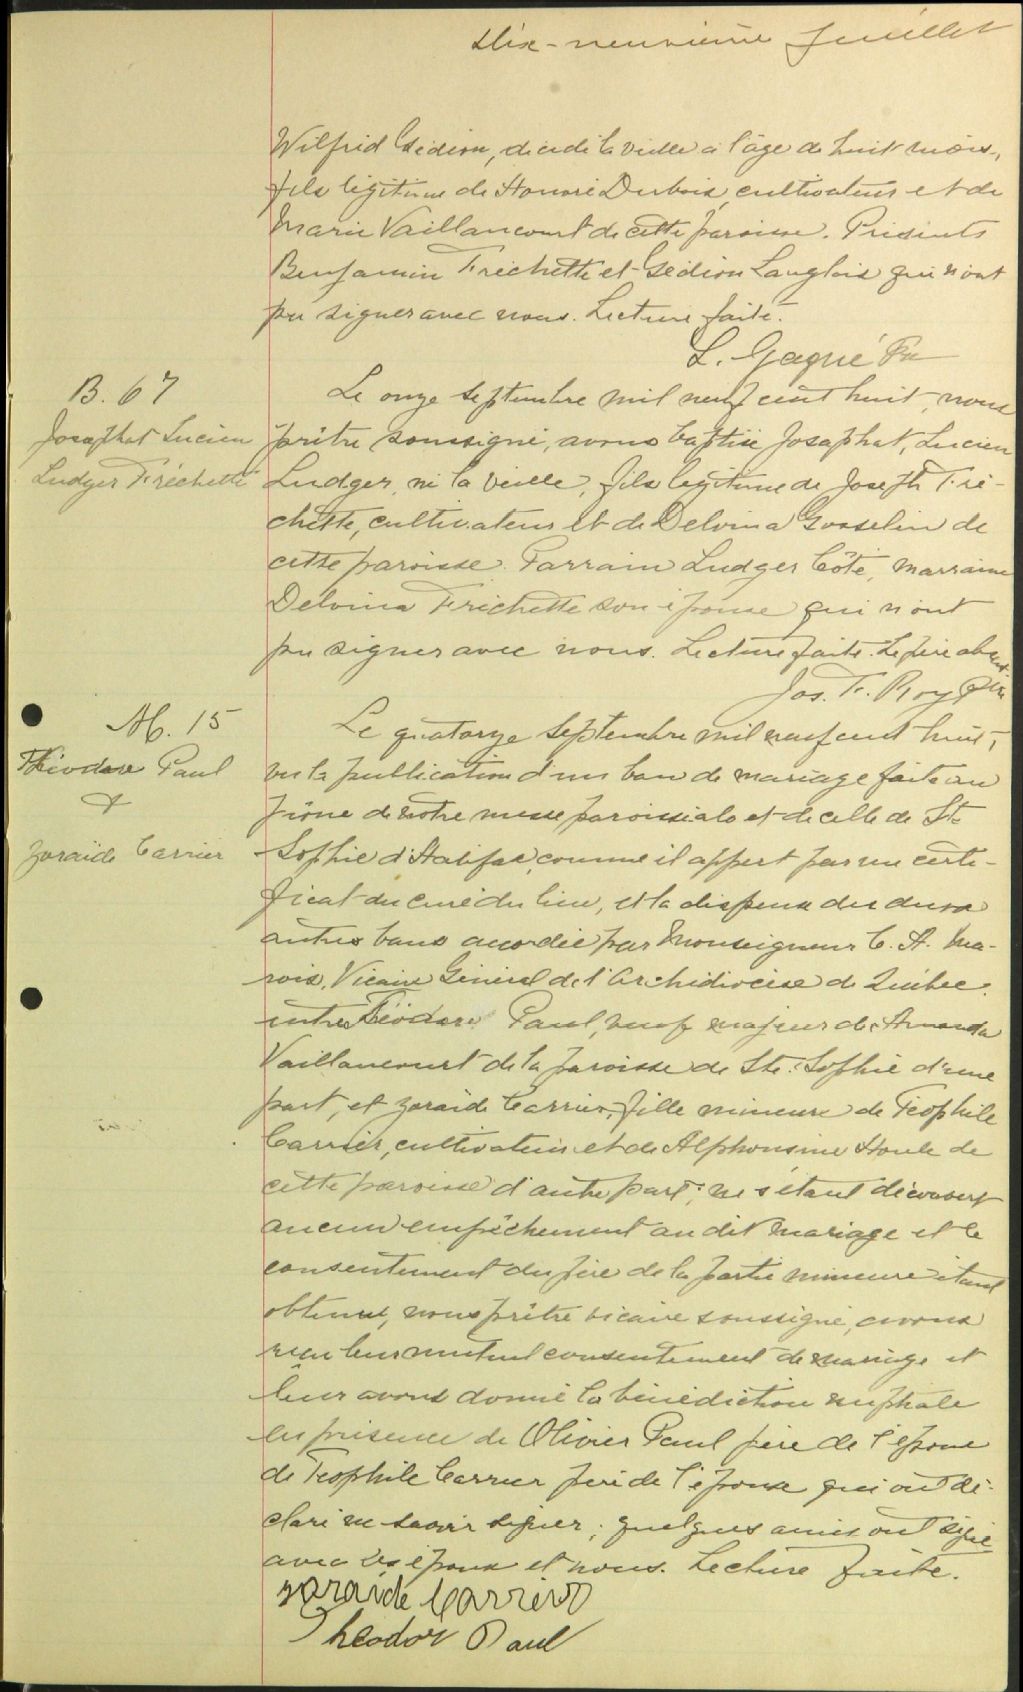 Dix-neuvième feuillet
Wilfrid Gédéon, décédé la veille à l'âge de huit mois,
fils légitime de Honoré Dubois, cultivateur et de
Marie Vaillancourt de cette paroisse. Présents
Benjamin Fréchette et Gédéon Langlois qui n'ont
pu signer avec nous. Lecture faite.
L. Gagné Ptre
B. 67
Josaphat Lucien
Ludger Fréchette
Le onze septembre mil neuf cent huit, nous
prêtre soussigné, avons baptisé Josaphat, Lucien
Ludger, né la veille, fils légitime de Joseph Fré-
chette, cultivateur et de Delvina Gosselin de
cette paroisse. Parrain Ludger Côté, marraine
Delvina Fréchette son épouse qui n'ont
pu signer avec nous. Lecture faite. Le père absent.
Jos. F. Roy Ptre
M. 15
Théodore Paul
&
Zoraïde Carrier
Le quatorze septembre mil neuf cent huit,
vu la publication d'un ban de mariage faite au
prône de notre messe paroissiale et de celle de Ste
Sophie d'Halifax, comme il appert par un certi-
ficat du curé du lieu, et la dispense des deux
autres bans accordée par Monseigneur C. A. Ma-
rois, Vicaire Général de l'Archidiocèse de Québec.
entre Théodore Paul, veuf majeur de Amanda
Vaillancourt de la paroisse de Ste. Sophie d'une
part, et Zoraïde Carrier, fille mineure de Téophile
Carrier, cultivateur et de Alphonsine Houle de
cette paroisse d'autre part; ne s'étant découvert
aucun empêchement au dit mariage et le
consentement du père de la partie mineure étant
obtenu, nous prêtre vicaire soussigné, avons
reçu leur mutuel consentement de mariage et
leur avons donné la bénédiction nuptiale
en présence de Olivier Paul père de l'époux
de Téophile Carrier père de l'épouse qui ont dé-
claré ne savoir signer; quelques amis ont signé
avec les époux et nous. Lecture faite.
Zoraide Carrier
Theodor Paul